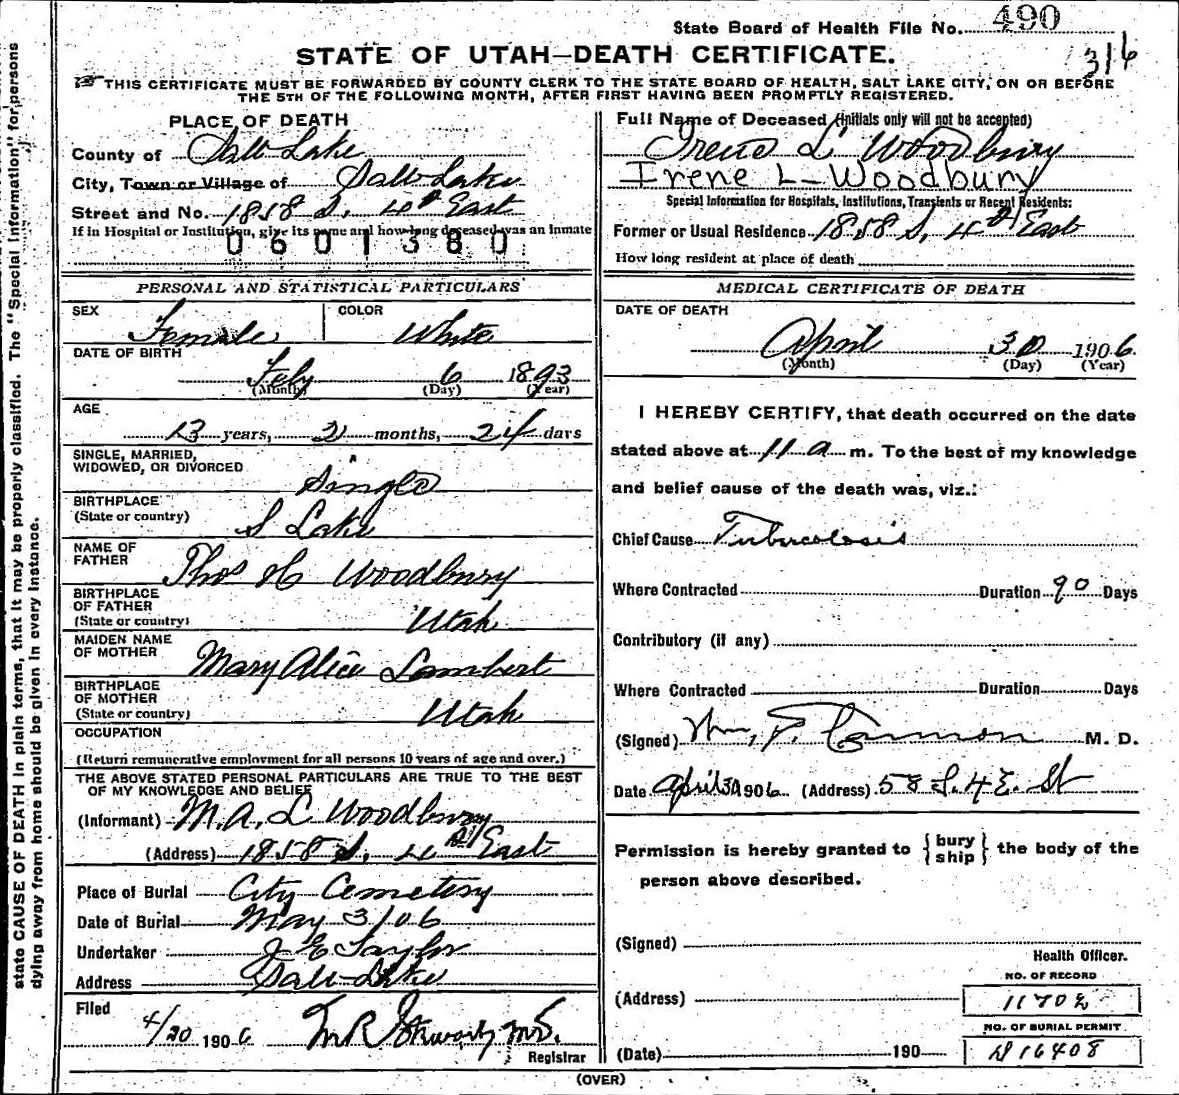 State Board of Health File No. 490
STATE OF UTAH—DEATH CERTIFICATE.
316
THIS CERTIFICATE MUST BE FORWARDED BY COUNTY CLERK TO THE STATE BOARD OF HEALTH, SALT LAKE CITY, ON OR BEFORE
THE 5TH OF THE FOLLOWING MONTH, AFTER FIRST HAVING BEEN PROMPTLY REGISTERED.
state CAUSE OF DEATH in plain terms, that it may be properly classified. The "Special Information" for persons
dying away from home should be given in every instance.
PLACE OF DEATH
County of Salt Lake
City, Town or Village of Salt Lake
Street and No. 1858 S. 4th East
If in Hospital or Institution, give its name and how long deceased was an inmate
0601380
PERSONAL AND STATISTICAL PARTICULARS
SEX Female COLOR White
DATE OF BIRTH
Feby 6 1893
(Month) (Day) (Year)
AGE
13 years, 2 months, 24 days
SINGLE, MARRIED,
WIDOWED, OR DIVORCED
Single
BIRTHPLACE
(State or country) S Lake
NAME OF
FATHER Thos H Woodbury
BIRTHPLACE
OF FATHER
(State or country) Utah
MAIDEN NAME
OF MOTHER Mary Alice Lambert
BIRTHPLACE
OF MOTHER
(State or country) Utah
OCCUPATION
(Return remunerative employment for all persons 10 years of age and over.)
THE ABOVE STATED PERSONAL PARTICULARS ARE TRUE TO THE BEST
OF MY KNOWLEDGE AND BELIEF
(Informant) M. A. L Woodbury
(Address) 1858 S. 4th East
Place of Burial City Cemetery
Date of Burial May 3/06
Undertaker J E Taylor
Address Salt Lake
Filed
4/30 1906 M.D.
Registrar
Full Name of Deceased (initials only will not be accepted)
Irene L Woodbury
Irene L-Woodbury
Special Information for Hospitals, Institutions, Transients or Recent Residents:
Former or Usual Residence 1858 S. 4th East
How long resident at place of death
MEDICAL CERTIFICATE OF DEATH
DATE OF DEATH
April 30 1906.
(Month) (Day) (Year)
I HEREBY CERTIFY, that death occurred on the date
stated above at 11 a m. To the best of my knowledge
and belief cause of the death was, viz.:
Chief Cause Tuberculosis
Where Contracted Duration 90 Days
Contributory (if any)
Where Contracted Duration Days
(Signed) Wm, F. Cannon M. D.
Date April 30 1906 (Address) 58 S. 4 E. St
Permission is hereby granted to { bury ship } the body of the
person above described.
(Signed)
Health Officer.
NO. OF RECORD
(Address) 11702
NO. OF BURIAL PERMIT
(Date) 190 D 16408
(OVER)